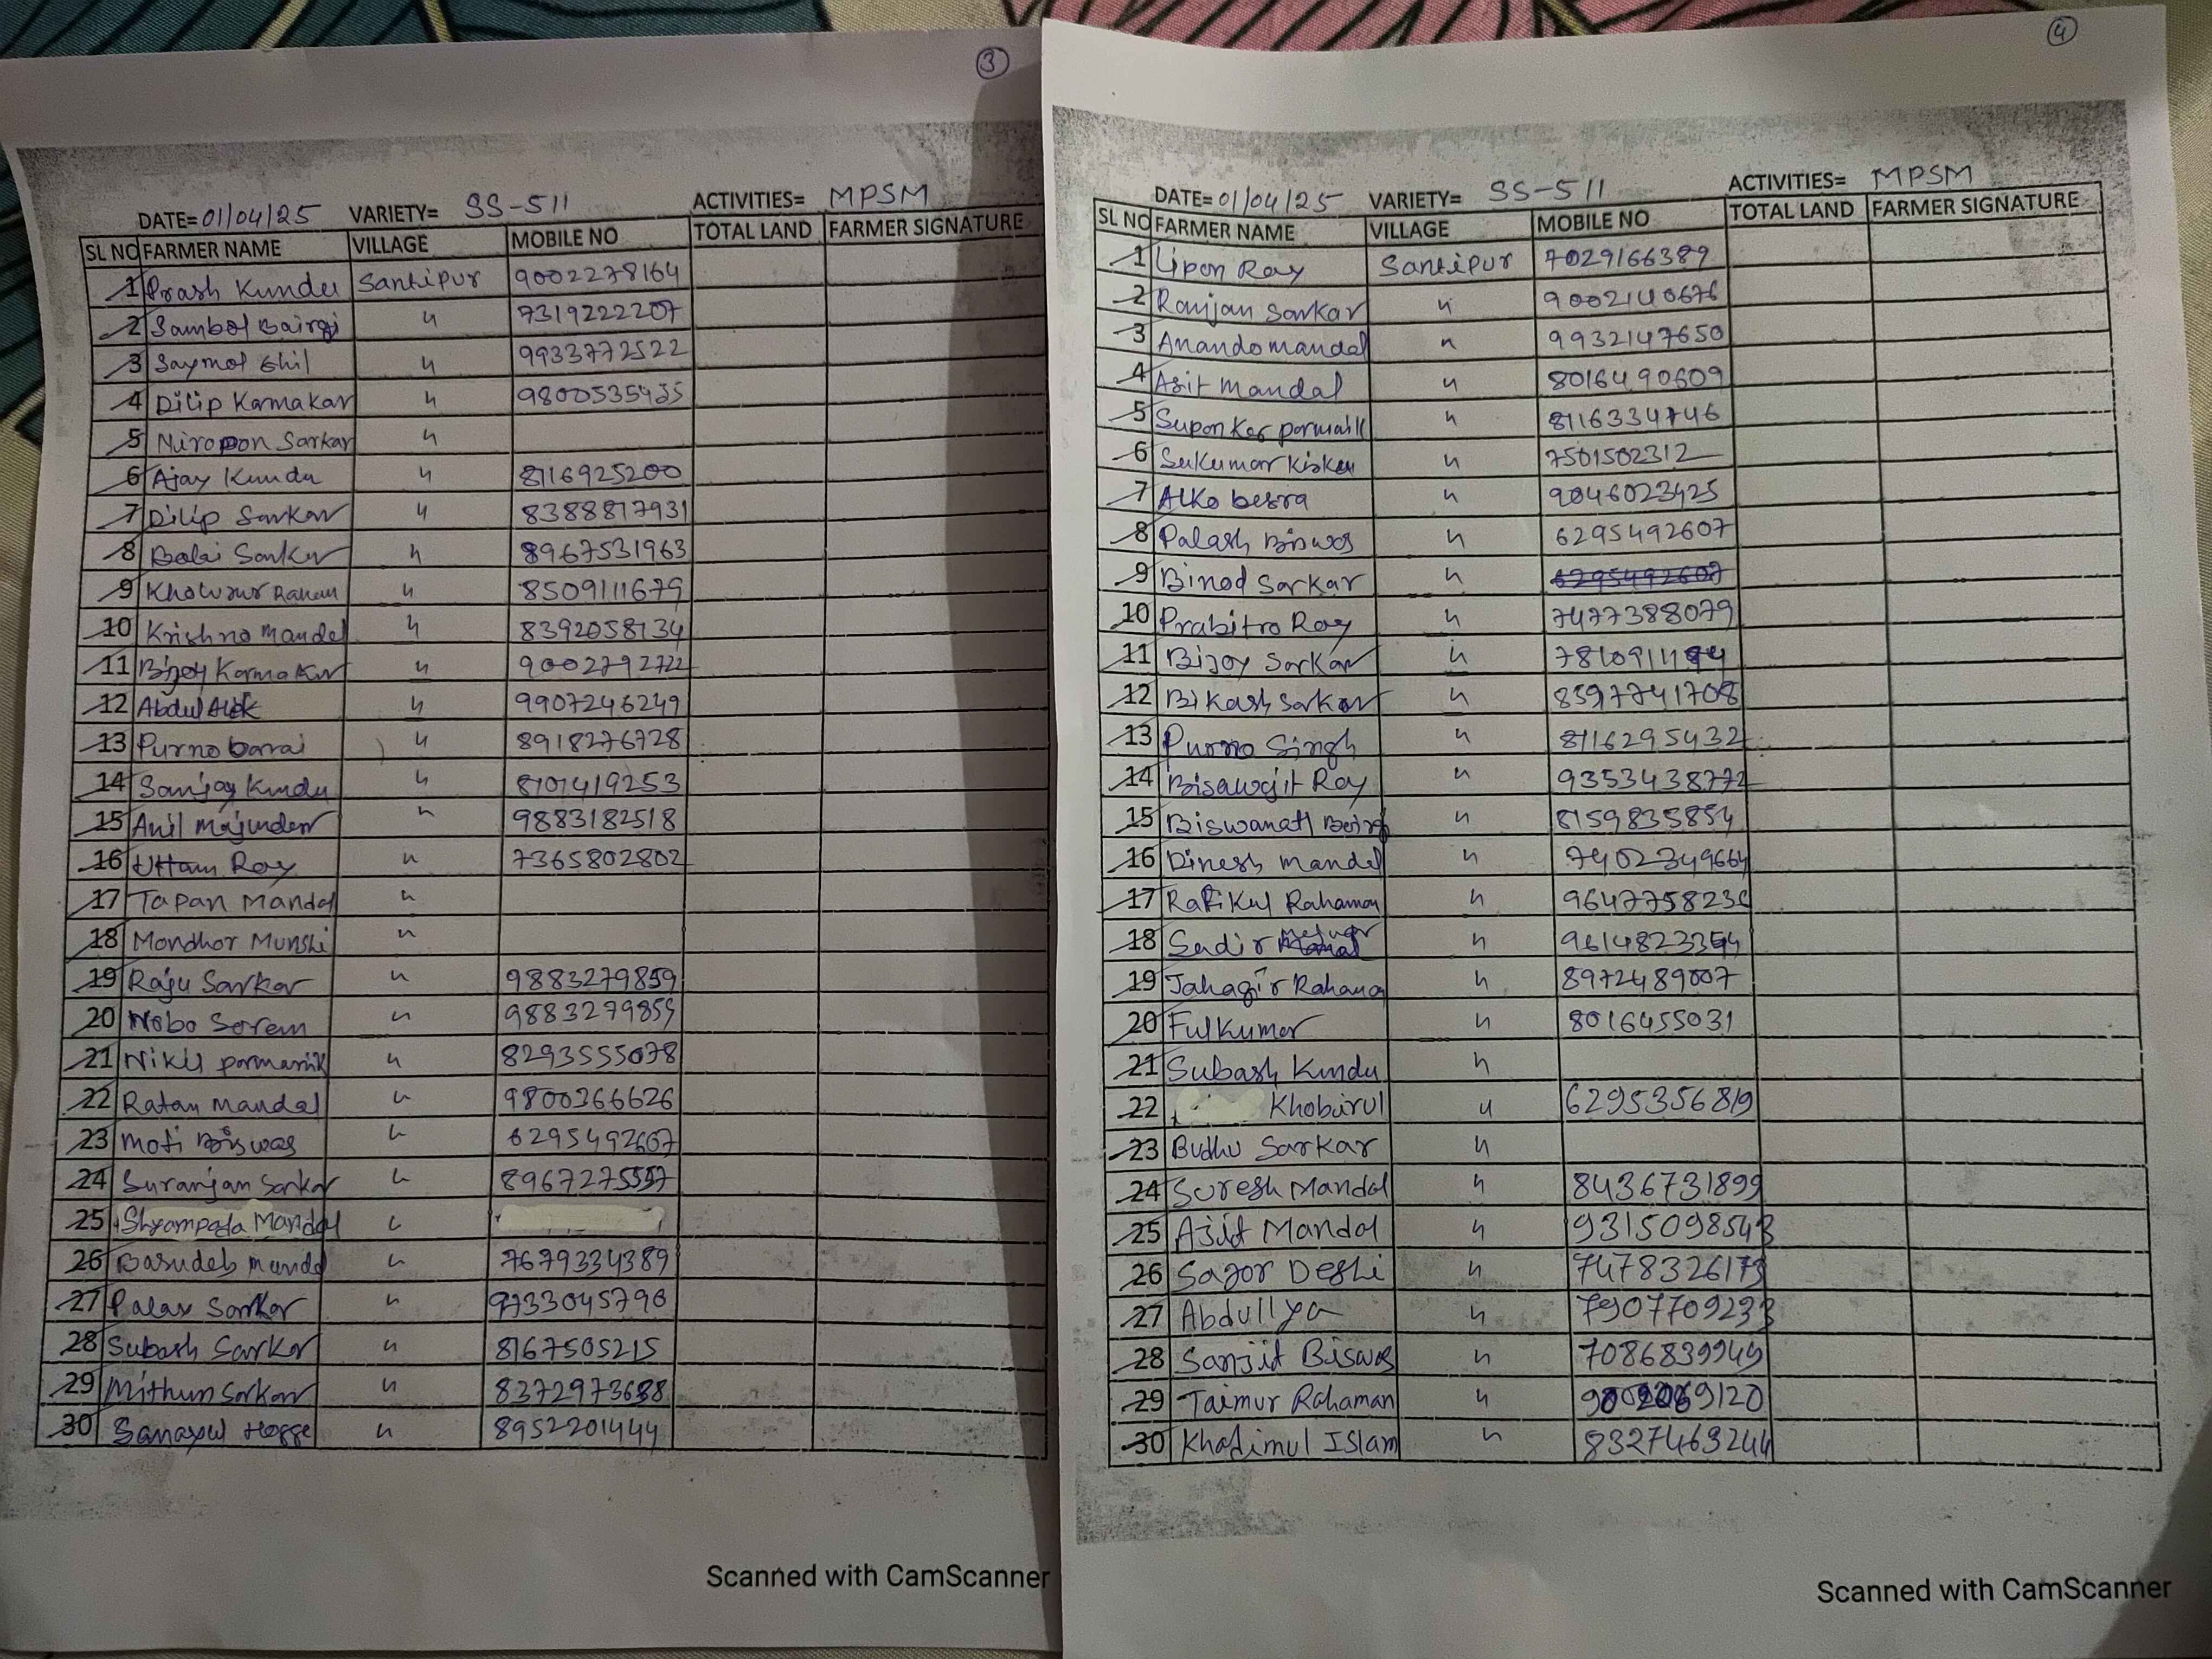 3
DATE= 01/04/25 VARIETY= SS-511 ACTIVITIES= MPSM
SL NO FARMER NAME VILLAGE MOBILE NO TOTAL LAND FARMER SIGNATURE
1 Prash Kundu Santipur 9002278164
2 Sambol Bairgi 〃 7319222207
3 Saymol Ghil 〃 9933772522
4 Dilip Karmakar 〃 9800535435
5 Niropon Sarkar 〃
6 Ajay Kundu 〃 8116925200
7 Dilip Sarkar 〃 8388817931
8 Balai Sarkar 〃 8967531963
9 〃 8509111679
10 Krishno Mandal 〃 8392058134
11 Bijoy Karmakar 〃 9002792722
12 Abdul 〃 9907246249
13 Purno barai 〃 8918276728
14 Sanjay Kundu 〃 8101419253
15 Anil Majumder 〃 9883182518
16 Uttam Ray 〃 7365802802
17 Tapan Mandal 〃
18 Mondhor Munshi 〃
19 Raju Sarkar 〃 9883279859
20 Nobo Sorem 〃 9883279859
21 Nikil pormanik 〃 8293555078
22 Ratan Mandal 〃 9800366626
23 Moti Biswas 〃 6295492607
24 Suranjan Sarkar 〃 8967275557
25 Shyampada Mandal 〃
26 Basudeb Mandal 〃 7679334389
27 Palas Sarkar 〃 9733045790
28 Subash Sarkar 〃 8167505215
29 Mithun Sarkar 〃 8372973688
30 Sanayul Hogge 〃 8952201444
Scanned with CamScanner
4
DATE= 01/04/25 VARIETY= SS-511 ACTIVITIES= MPSM
SL NO FARMER NAME VILLAGE MOBILE NO TOTAL LAND FARMER SIGNATURE
1 Lipon Ray Santipur 7029166389
2 Ranjan Sarkar 〃 9002140676
3 Anando mandal 〃 9932147650
4 Asit Mandal 〃 8016490609
5 〃 8116334746
6 Sukumar Kisku 〃 7501502312
7 Alko besra 〃 9046023425
8 Palash Biswas 〃 6295492607
9 Binod Sarkar 〃 6295492607
10 Prabitro Ray 〃 7477388079
11 Bijoy Sarkar 〃
12 Bikash Sarkar 〃 8597741708
13 Purno Singh 〃 8116295432
14 Biswajit Roy 〃 9353438772
15 Biswanath 〃 8159835854
16 Dinesh Mandal 〃 7402349664
17 Rafikul Rahaman 〃 9647758236
18 Sadir 〃
19 Jahagir Rahaman 〃 8972489007
20 Fulkumar 〃 8016455031
21 Subash Kundu 〃
22 Khobirul 〃 6295356819
23 Budhu Sarkar 〃
24 Suresh Mandal 〃 8436731899
25 Ajit Mandal 〃 9315098543
26 Sagor Deshi 〃 7478326173
27 Abdullya 〃 7907709233
28 Sanjit Biswas 〃 7086839949
29 Taimur Rahaman 〃
30 Khadimul Islam 〃 8327463244
Scanned with CamScanner